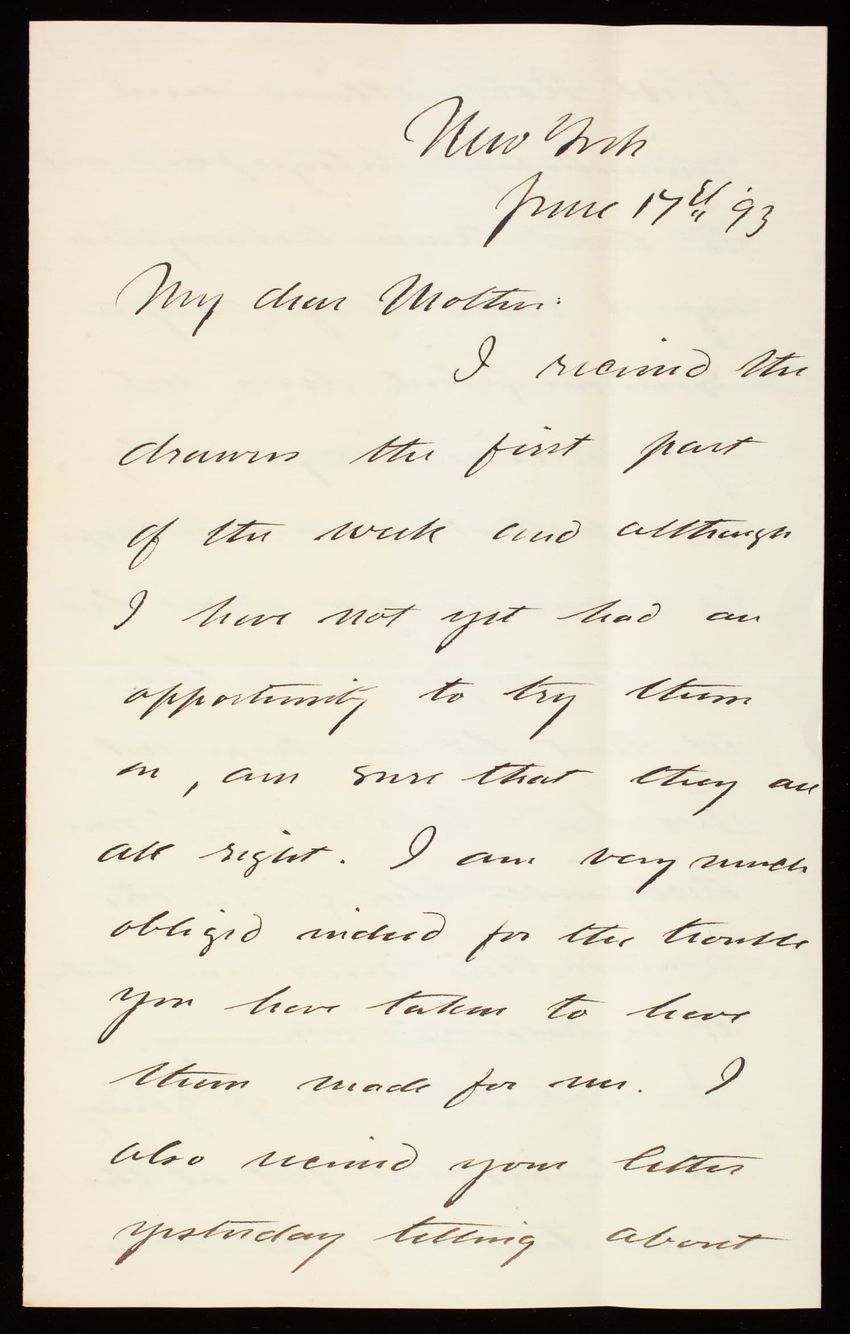 New York
June 17th '93
My dear Mother:
I received the
drawers the first part
of the week and although
I have not yet had an
opportunity to try them
on, am sure that they are
all right. I am very much
obliged indeed for the trouble
you have taken to have
them made for me. I
also received your letter
yesterday telling about